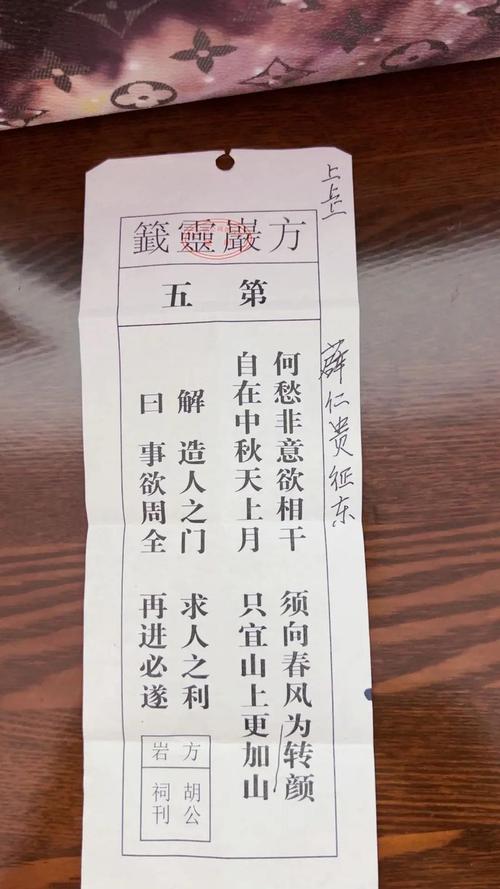 方巖靈籤
第五
何愁非意欲相干 须向春风为转颜
自在中秋天上月 只宜山上更加山
解 造人之门 求人之利
曰 事欲周全 再进必遂
方 胡公
岩 祠刊
上上
薛仁贵征东